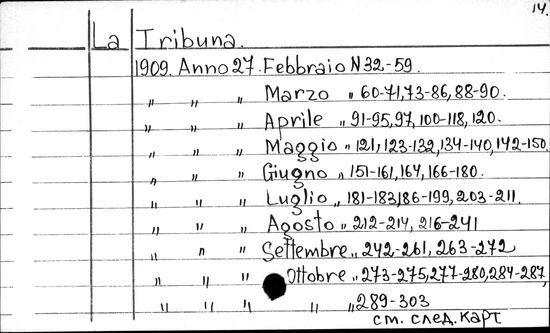 14.
La Tribuna.
1909. Anno 27. Febbraio N 32-59.
" " " Marzo " 60-71,73-86,88-90.
" " " Aprile " 91-95,97,100-118,120.
" " " Maggio " 121,123-132,134-140,142-150.
" " " Giugno " 151-161,164,166-180.
" " " Luglio " 181-183,186-199,203-211.
" " " Agosto " 212-214, 216-241
" " " Settembre " 242-261, 263-272
" " " Ottobre " 273-275,277-280,284-287,
" " " " " 289-303
см. след. карт